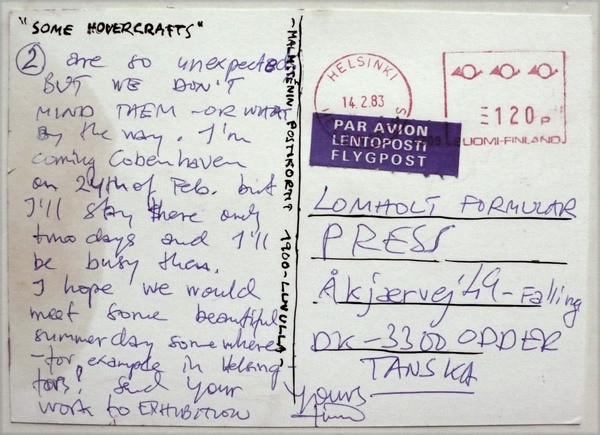 "SOME HOVERCRAFTS"
② are so unexpected
BUT WE DON'T
MIND THEM - OR WHAT
By the way. I'm
coming Cobenhaven
on 24th of Feb. but
I'll stay there only
two days and I'll
be busy then.
I hope we would
meet some beautiful
summer day somewhere
- for example in Helsing
fors! Send your
work to EXHIBITION
POSTIKORTIT 1900-LUVULLA -
yours
HELSINKI
14.2.83
120 P
SUOMI-FINLAND
PAR AVION
LENTOPOSTI
FLYGPOST
LOMHOLT FORMULAR
PRESS
Åkjærvej 49 - Falling
DK-3300 ODDER
TANSKA